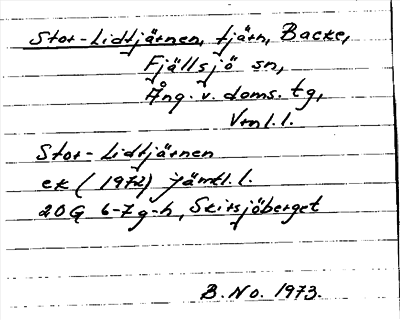 Stor-Lidtjärnen, tjärn, Backe,
Fjällsjö sn,
Ång. v. doms. tg,
Vrnl. l.
Stor-Lidtjärnen
ek (1972) Jämtl. l.
20G 6-7g-h, Skirsjöberget
B. No. 1973.